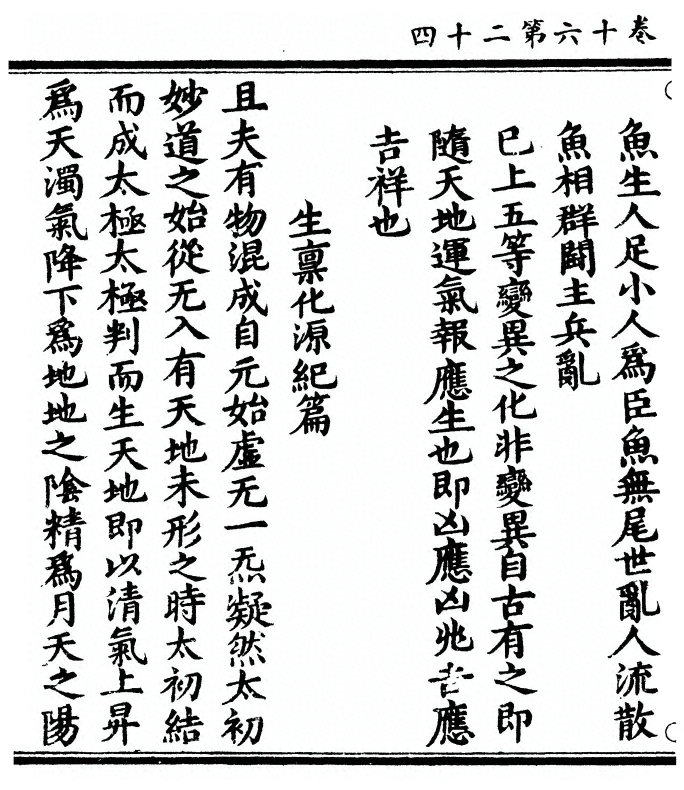 卷十六第二十四
魚生人足小人爲臣魚無尾世亂人流散
魚相群鬪主兵亂
已上五等變異之化非變異自古有之即
隨天地運氣報應生也即凶應凶兆吉應
吉祥也
生稟化源紀篇
且夫有物混成自元始虛无一炁凝然太初
妙道之始從无入有天地未形之時太初結
而成太極太極判而生天地即以清氣上昇
爲天濁氣降下爲地地之陰精爲月天之陽